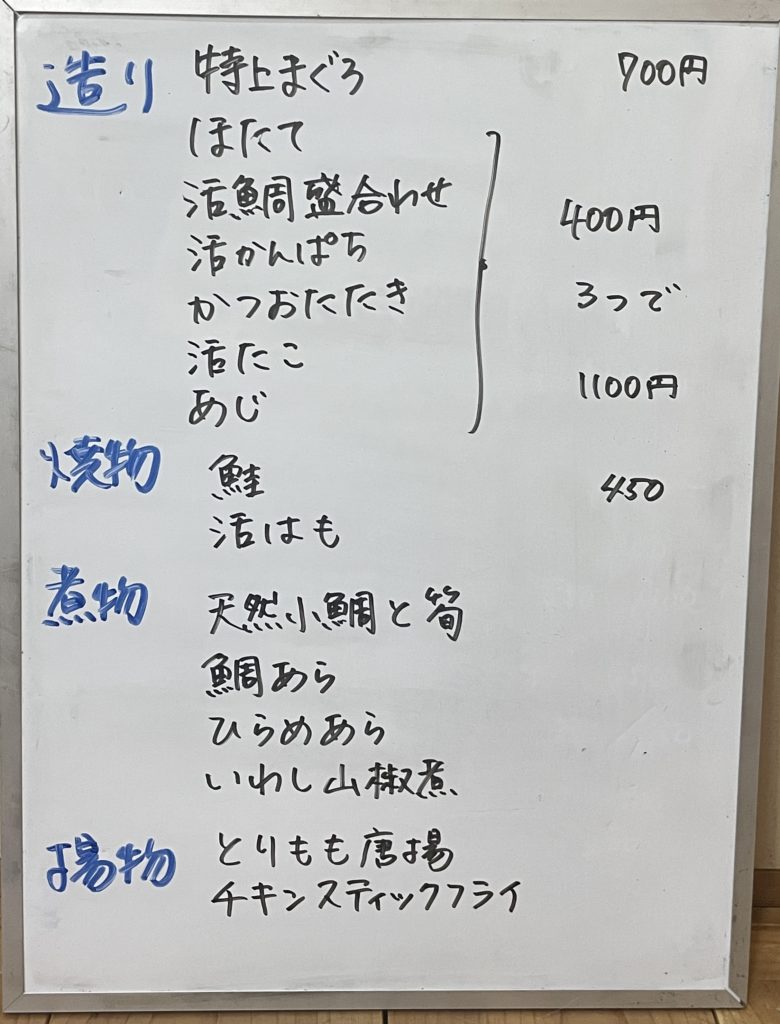 造り 特上まぐろ 700円
ほたて
活鯛盛合わせ 400円
活かんぱち
かつおたたき 3つで
活たこ 1100円
あじ
焼物 鮭 450
活はも
煮物 天然小鯛と筍
鯛あら
ひらめあら
いわし山椒煮
揚物 とりもも唐揚
チキンスティックフライ